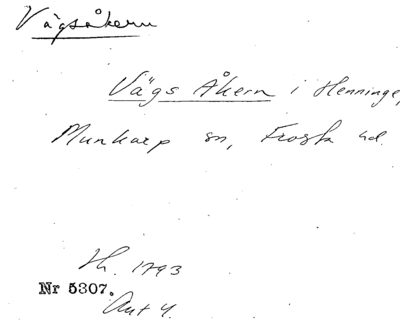 Vägsåkern
Vägs Åkern i Henninge,
Munkarp sn, Frosta hd.
Sh. 1793
Nr 5307.
Akt 4.